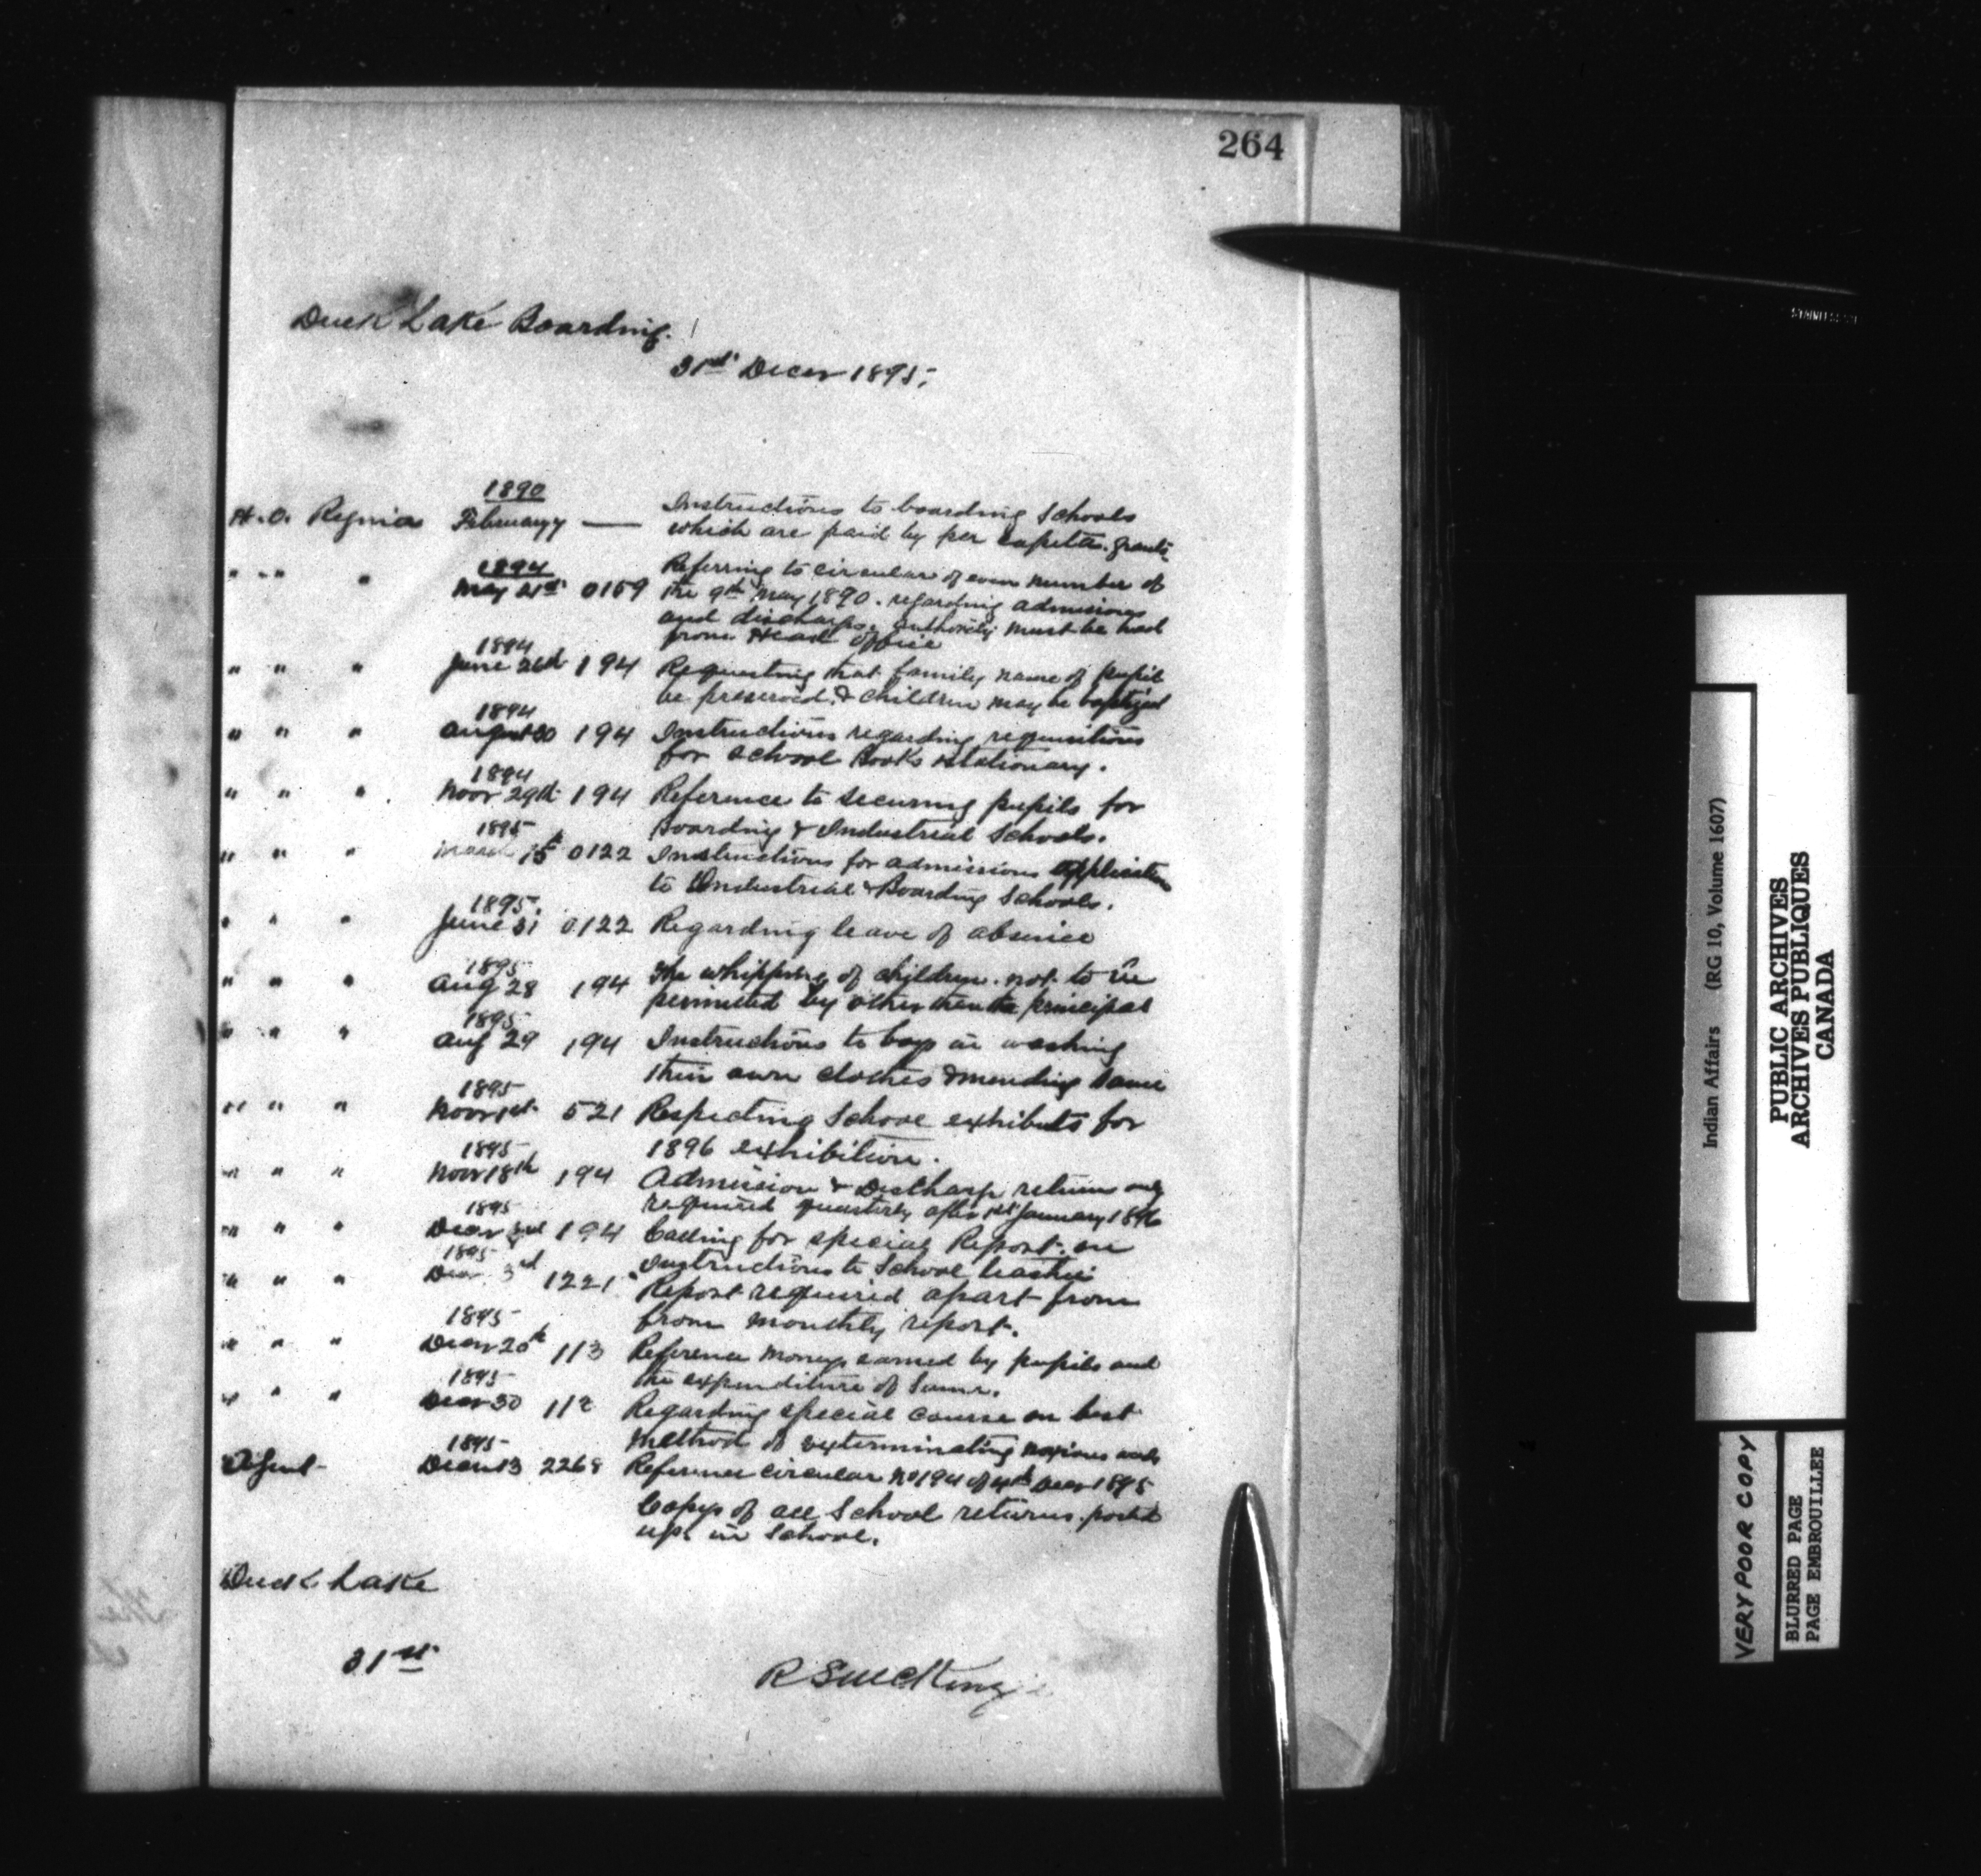 264
Duck Lake Boarding.
31st Decer 1895.
1890
H.O. Regina February — Instructions to boarding Schools
which are paid by per capita grants.
1894
" " " May 21st 0159 Referring to circular of even number of
the 9th May 1890. regarding admissions
and discharge, authority must be had
from Head Office
1894
" " " June 26th 194 Requesting that family name of pupil
be preserved & children may be baptized
1894
" " " August 30 194 Instructions regarding requisitions
for School Books stationary.
1894
" " " Novr 29th 194 Reference to securing pupils for
Boarding & Industrial Schools.
1895
" " " March 0122 Instructions for admissions application
to Industrial & Boarding Schools.
1895
" " " June 0122 Regarding leave of absence
1895
" " " Aug 28 194 The whipping of children not to be
permitted by other than the principal
1895
" " " Aug 29 194 Instructions to boys in washing
their own clothes & mending same
1895
" " " Novr 1st 521 Respecting School exhibits for
1896 exhibition.
1895
" " " Novr 18th 194 Admission & Discharge returns only
required quarterly after 1st January 1896
1895
" " " Decr 3rd 194 Calling for special Report on
instructions to School
1895
" " " Decr 3rd 1221 Report required apart from
from monthly report.
1895
" " " Decr 20th 113 Reference money earned by pupils and
the expenditure of same.
1895
" " " Decr 30 112 Regarding special course on best
method of exterminating noxious weeds
1895
Agent Decr 13 2268 Reference circular No 194 of 4th Decr 1895
Copy of all School returns posted
up in School.
Duck Lake
31st
R S McKenzie
STAINLESS
Indian Affairs (RG 10, Volume 1607)
PUBLIC ARCHIVES
ARCHIVES PUBLIQUES
CANADA
VERY POOR COPY
BLURRED PAGE
PAGE EMBROUILLEE